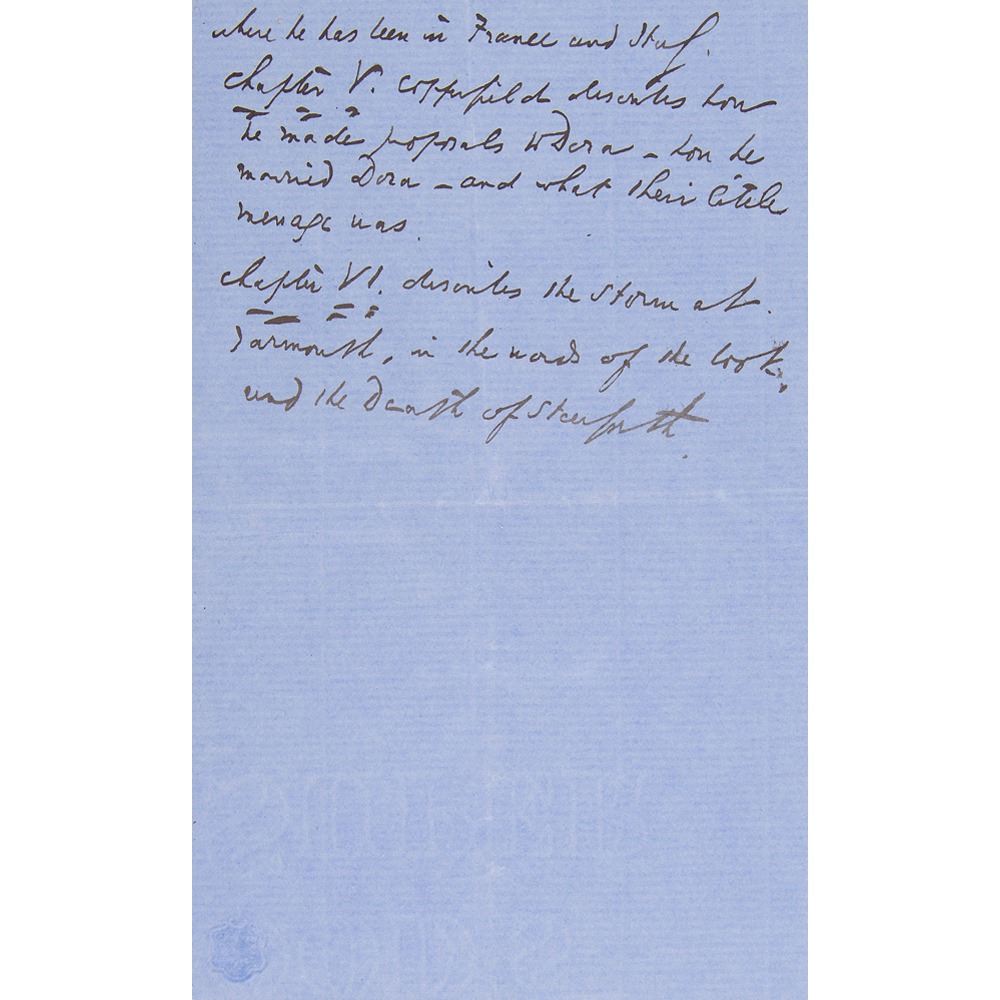 where he has been in France and Italy.
Chapter V. Copperfield describes how
he made proposals to Dora – how he
married Dora – and what their little
menage was.
Chapter VI. describes the storm at
Yarmouth, in the words of the book,
and the Death of Steerforth.